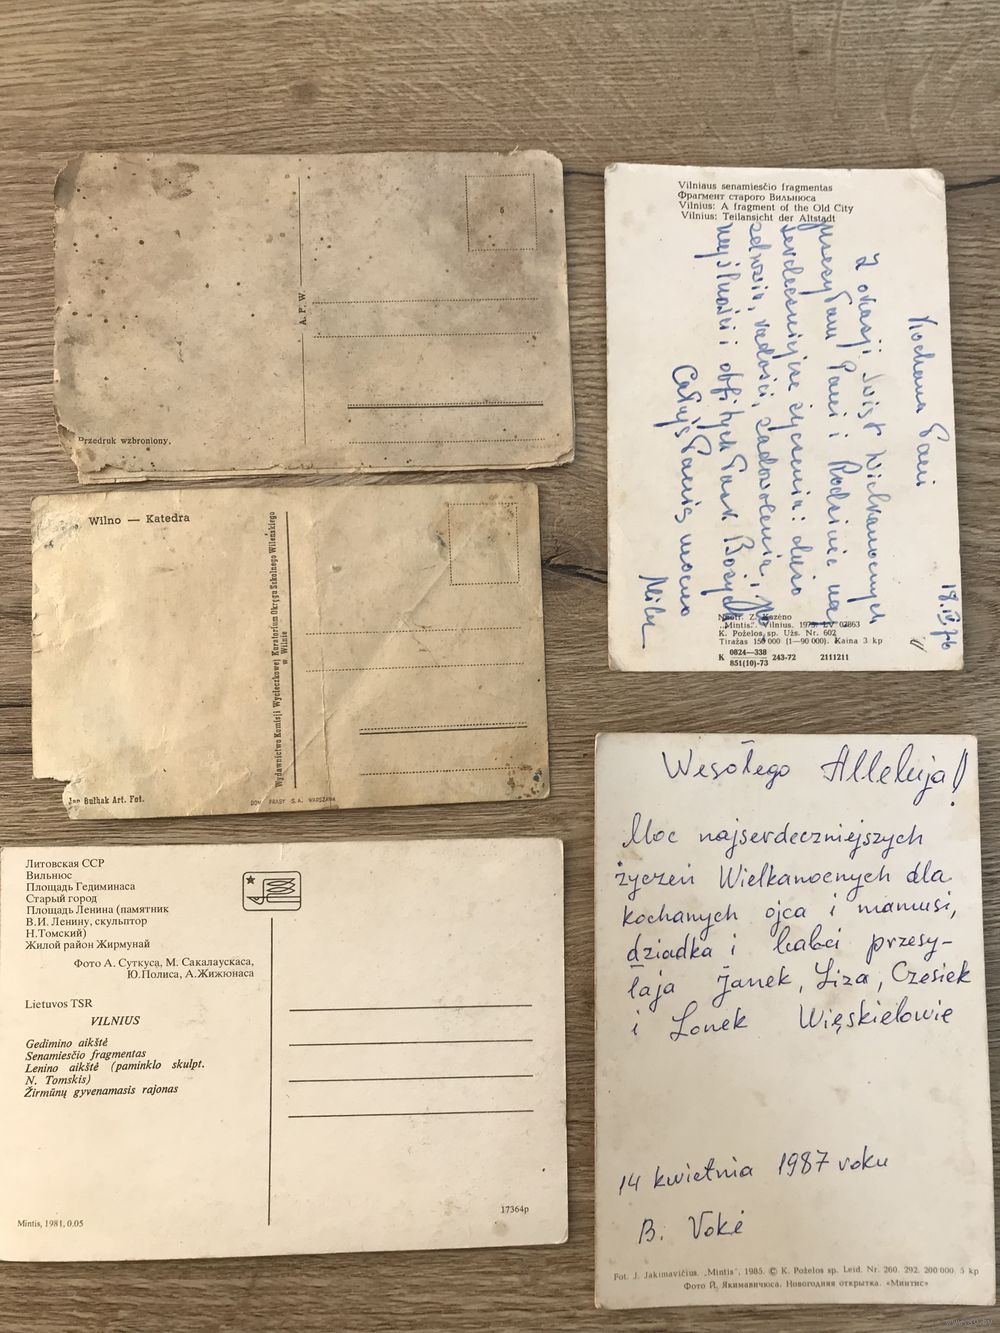 6
A. P. W.
Przedruk wzbroniony.
Wilno — Katedra
Wydawnictwo Komisji Wycieczkowej Kuratorium Okręgu Szkolnego Wileńskiego
w Wilnie
Jan Bułhak Art. Fot.
DOM PRASY S.A. WARSZAWA
Литовская ССР
Вильнюс
Площадь Гедиминаса
Старый город
Площадь Ленина (памятник
В.И. Ленину, скульптор
Н.Томский)
Жилой район Жирмунай
Фото А. Суткуса, М. Сакалаускаса,
Ю.Полиса, А.Жижюнаса
Lietuvos TSR
VILNIUS
Gedimino aikštė
Senamiesčio fragmentas
Lenino aikštė (paminklo skulpt.
N. Tomskis)
Žirmūnų gyvenamasis rajonas
Mintis, 1981, 0.05
17364p
Vilniaus senamiesčio fragmentas
Фрагмент старого Вильнюса
Vilnius: A fragment of the Old City
Vilnius: Teilansicht der Altstadt
18.IV.76
Kochana Pani
Z okazji Świąt Wielkanocnych
przesyłam Pani i Rodzinie naj
serdeczniejsze życzenia: dużo
zdrowia, radości, zadowolenia,
pomyślności i obfitych Łask Bożych
Całuję Panią mocno
Z. Kazėno
"Mintis". Vilnius. 1975. LV 02863
K. Poželos sp. Užs. Nr. 602
Tiražas 150 000 (1—90 000). Kaina 3 kp
K 0824—338
851(10)-73 243-72 2111211
Wesołego Alleluja!
Moc najserdeczniejszych
życzeń Wielkanocnych dla
kochanych ojca i mamusi,
dziadka i babci przesy-
łają Janek, Liza, Czesiek
i Lonek Więskielowie
14 kwietnia 1987 roku
B. Vokė
Fot. J. Jakimavičius. „Mintis", 1985. © K. Poželos sp. Leid. Nr. 260. 292. 200 000. 5 kp
Фото Й. Якимавичюса. Новогодняя открытка. «Минтис»